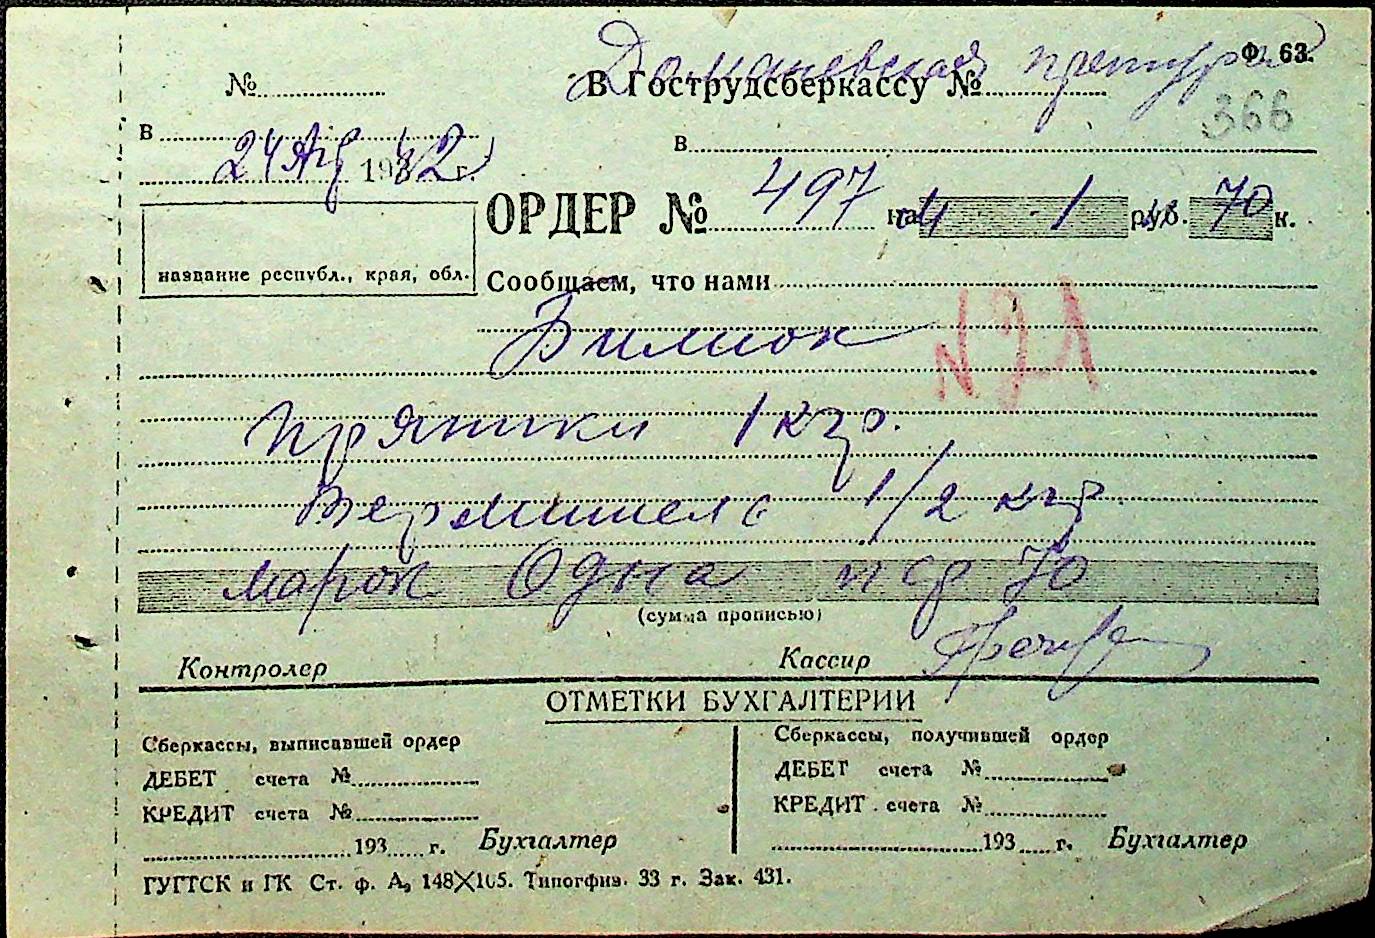 Доманевская претура
Ф. 63.
№
В Гострудсберкассу №
366
в
в
24 Апр 1942 г.
ОРДЕР № 497 на 1 руб. 70 к.
название республ., края, обл.
Сообщаем, что нами
№ 21
Пряники 1 кгр.
Вермишель 1/2 кгр.
марок Одна 70
(сумма прописью)
Контролер
Кассир
ОТМЕТКИ БУХГАЛТЕРИИ
Сберкассы, выписавшей ордер
Сберкассы, получившей ордер
ДЕБЕТ счета №
ДЕБЕТ счета №
КРЕДИТ счета №
КРЕДИТ счета №
193 г. Бухгалтер
193 г. Бухгалтер
ГУГТСК и ГК Ст. ф. А, 148X105. Типогфиз. 33 г. Зак. 431.